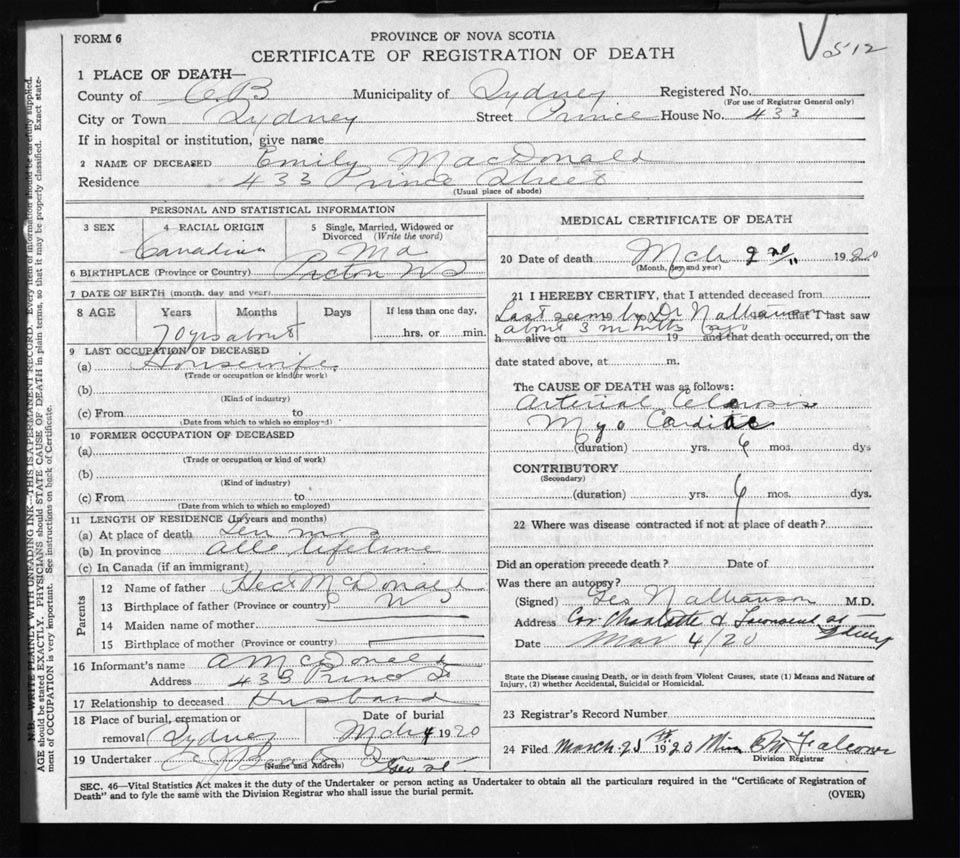 FORM 6
PROVINCE OF NOVA SCOTIA
V 512
CERTIFICATE OF REGISTRATION OF DEATH
1 PLACE OF DEATH—
County of C. B Municipality of Sydney Registered No.
(For use of Registrar General only)
City or Town Sydney Street Prince House No. 433
If in hospital or institution, give name
2 NAME OF DECEASED Emily MacDonald
Residence 433 Prince Street
(Usual place of abode)
PERSONAL AND STATISTICAL INFORMATION
3 SEX 4 RACIAL ORIGIN 5 Single, Married, Widowed or
Divorced (Write the word)
Canadian Md
6 BIRTHPLACE (Province or Country) Pictou NS
7 DATE OF BIRTH (month, day and year)
8 AGE Years Months Days If less than one day,
70 yrs about hrs. or min.
9 LAST OCCUPATION OF DECEASED
(a) Housewife.
(Trade or occupation or kind of work)
(b)
(Kind of industry)
(c) From to
(Date from which to which so employed)
10 FORMER OCCUPATION OF DECEASED
(a)
(Trade or occupation or kind of work)
(b)
(Kind of industry)
(c) From to
(Date from which to which so employed)
11 LENGTH OF RESIDENCE (In years and months)
(a) At place of death Ten
(b) In province alle lifetime
(c) In Canada (if an immigrant)
Parents
12 Name of father Hect McDonald
13 Birthplace of father (Province or country) NS
14 Maiden name of mother
15 Birthplace of mother (Province or country)
16 Informant's name A McDonald
Address 433 Prince St
17 Relationship to deceased Husband
18 Place of burial, cremation or Date of burial
removal Sydney Mch 4 1920
19 Undertaker
(Name and Address) Geo St
MEDICAL CERTIFICATE OF DEATH
20 Date of death Mch 2nd " 1920
(Month, day and year)
21 I HEREBY CERTIFY, that I attended deceased from
Last seen by Dr Nathanson that I last saw
about 3 months ago
h alive on 19 and that death occurred, on the
date stated above, at m.
The CAUSE OF DEATH was as follows:
Arterial Clerosis
Myo Cardiac
(duration) yrs. 6 mos. dys
CONTRIBUTORY
(Secondary)
(duration) yrs. 6 mos. dys.
22 Where was disease contracted if not at place of death?
Did an operation precede death? Date of
Was there an autopsy?
(Signed) Geo Nathanson M.D.
Address Cor Charlotte & Townsend St Sydney
Date Mar 4/20
State the Disease causing Death, or in death from Violent Causes, state (1) Means and Nature of
Injury, (2) whether Accidental, Suicidal or Homicidal.
23 Registrar's Record Number
24 Filed March 25th 1920 Falconer
Division Registrar
SEC. 46—Vital Statistics Act makes it the duty of the Undertaker or person acting as Undertaker to obtain all the particulars required in the "Certificate of Registration of
Death" and to fyle the same with the Division Registrar who shall issue the burial permit.
(OVER)
N.B.—WRITE PLAINLY WITH UNFADING INK—THIS IS A PERMANENT RECORD. Every item of information should be carefully supplied.
AGE should be stated EXACTLY. PHYSICIANS should STATE CAUSE OF DEATH in plain terms, so that it may be properly classified. Exact state-
ment of OCCUPATION is very important. See instructions on back of Certificate.